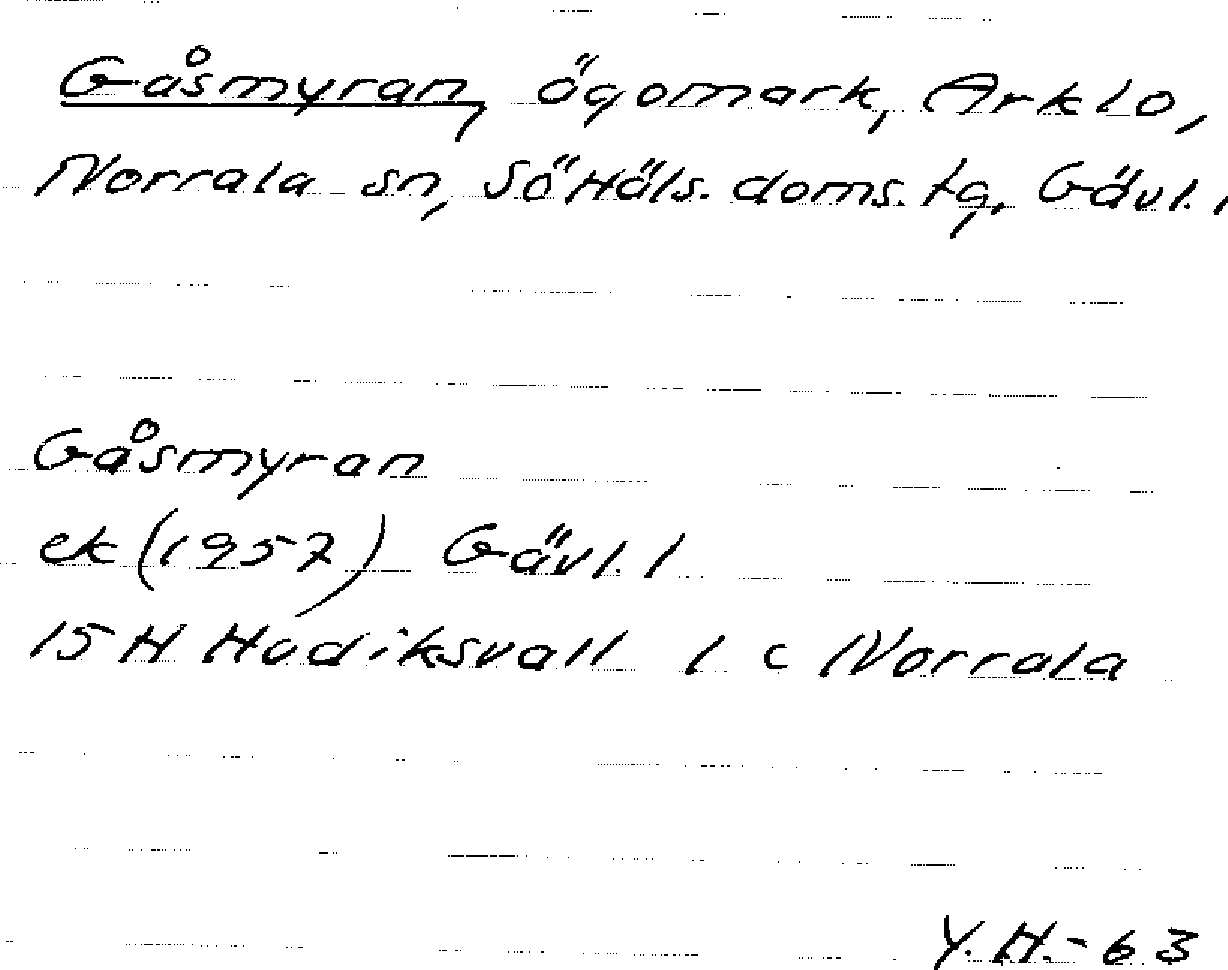 Gåsmyran, ägomark, Arklo,
Norrala sn, SöHäls. doms. tg, Gävl. l
Gåsmyran
ek (1957) Gävl. l
15 H Hudiksvall 1 c Norrala
Y.H.-63